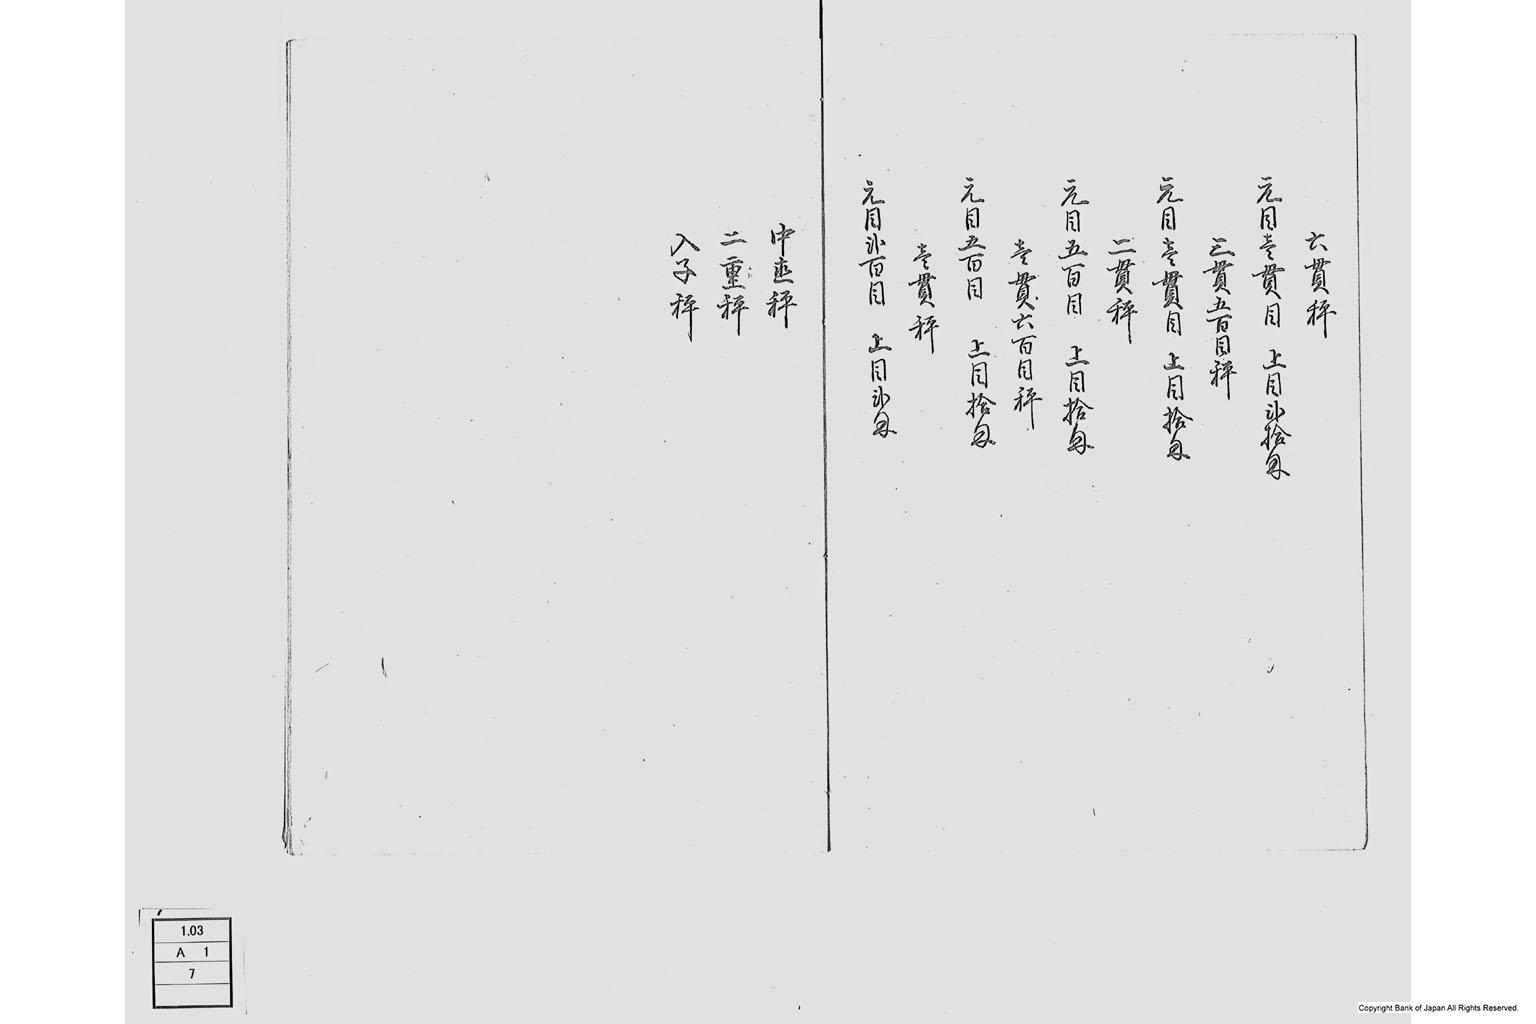 六貫秤
元目壱貫目　上目弐拾匁
三貫五百目秤
元目壱貫目　上目拾匁
二貫秤
元目五百目　上目拾匁
壱貫六百目秤
元目五百目　上目拾匁
壱貫秤
元目弐百目　上目弐匁
中 秤
二重秤
入子秤
1.03
A 1
7
Copyright Bank of Japan All Rights Reserved.